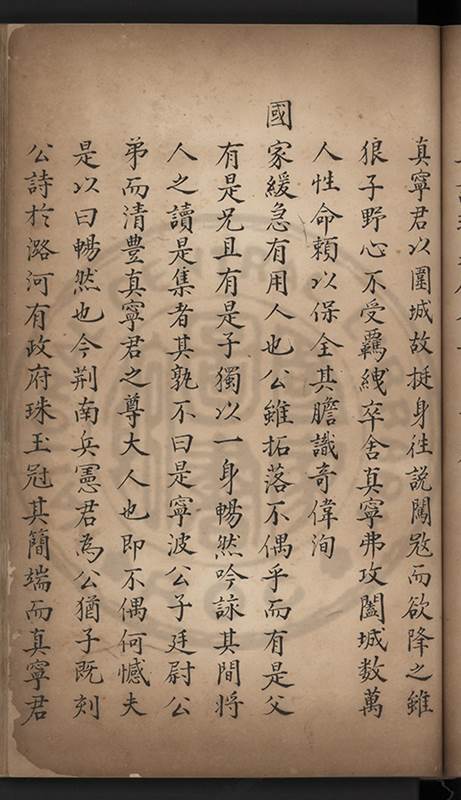 真寧君以圍城故挺身往說闖寇而欲降之雖
狼子野心不受羈絏卒舍真寧弗攻闔城数萬
人性命賴以保全其膽識奇偉洵
國家緩急有用人也公雖拓落不偶乎而有是父
有是兄且有是子獨以一身暢然吟詠其間將
人之讀是集者其孰不曰是寧波公子廷尉公
弟而清豊真寧君之尊大人也即不偶何憾夫
是以曰暢然也今荆南兵憲君為公猶子既刻
公詩於潞河有政府珠玉冠其簡端而真寧君